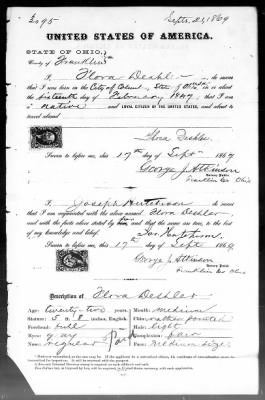 Sept. 21, 1869
UNITED STATES OF AMERICA.
STATE OF OHIO,
County of Franklin
I, Flora Deshler do swear
that I was born in the City of Colum., State of Ohio on
the sixteenth day of February 1847, that I am
a native AND LOYAL CITIZEN OF THE UNITED STATES, and about to
travel abroad
Flora Deshler
Sworn to before me, this 17th day of Sept 1869
George J. Atkinson
Notary Public
Franklin Co. Ohio
I, Joseph Hutcheson do swear
that I am acquainted with the above named Flora Deshler,
and with the facts above stated by him, and that the same are true, to the best
of my knowledge and belief. Jos. Hutcheson
Sworn to before me, this 17th day of Sept 1869
George J. Atkinson
Notary Public
Franklin Co. Ohio
Description of Flora Deshler
Age: twenty-two years,
Stature: 5 a 8 inches, English
Forehead: full
Eyes: gray
Nose: regular
Mouth: medium
Chin: rather pointed
Hair: light
Complexion: fair
Face: Medium size